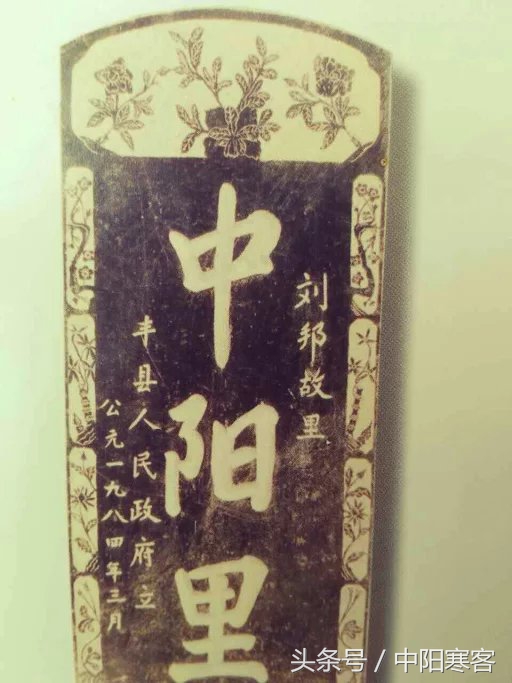 刘邦故里
中阳里
丰县人民政府立
公元一九八四年三月
头条号/中阳寒客